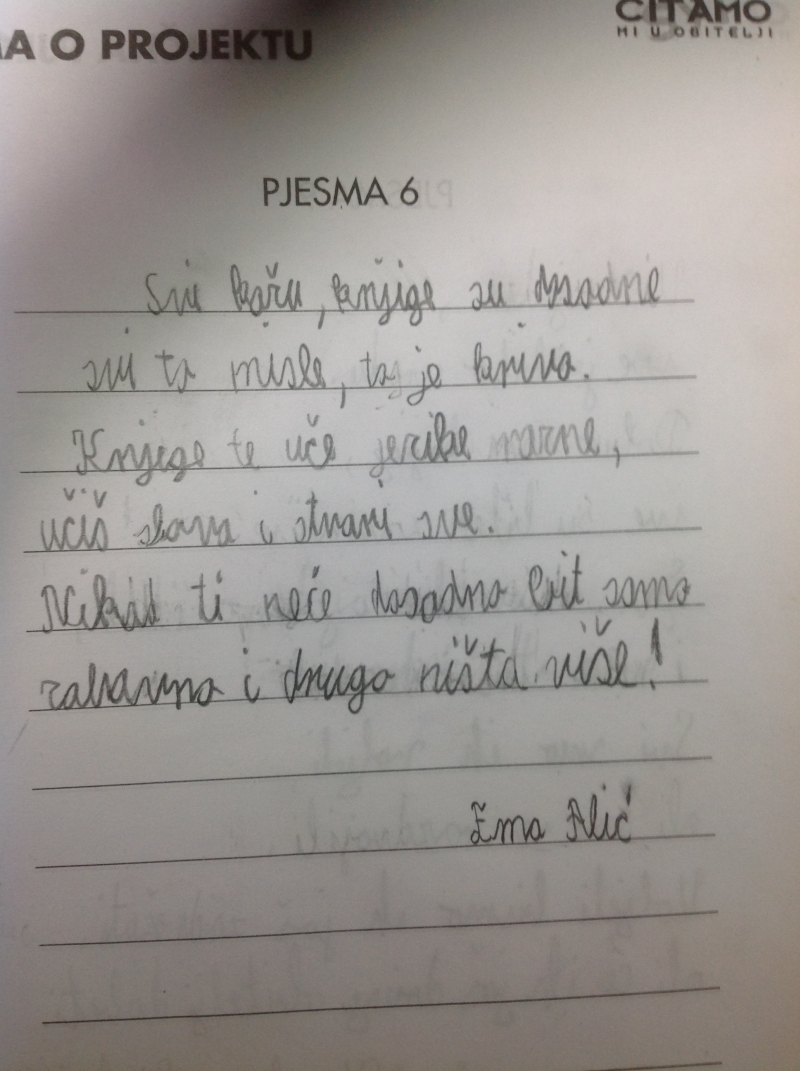 A O PROJEKTU
ČITAMO
MI U OBITELJI
PJESMA 6
Svi kažu, knjige su dosadne
svi to misle, to je krivo.
Knjige te uče jezike razne,
učiš slova i stvari sve.
Nikad ti neće dosadno bit samo
zabavno i drugo ništa više!
Ema Alić